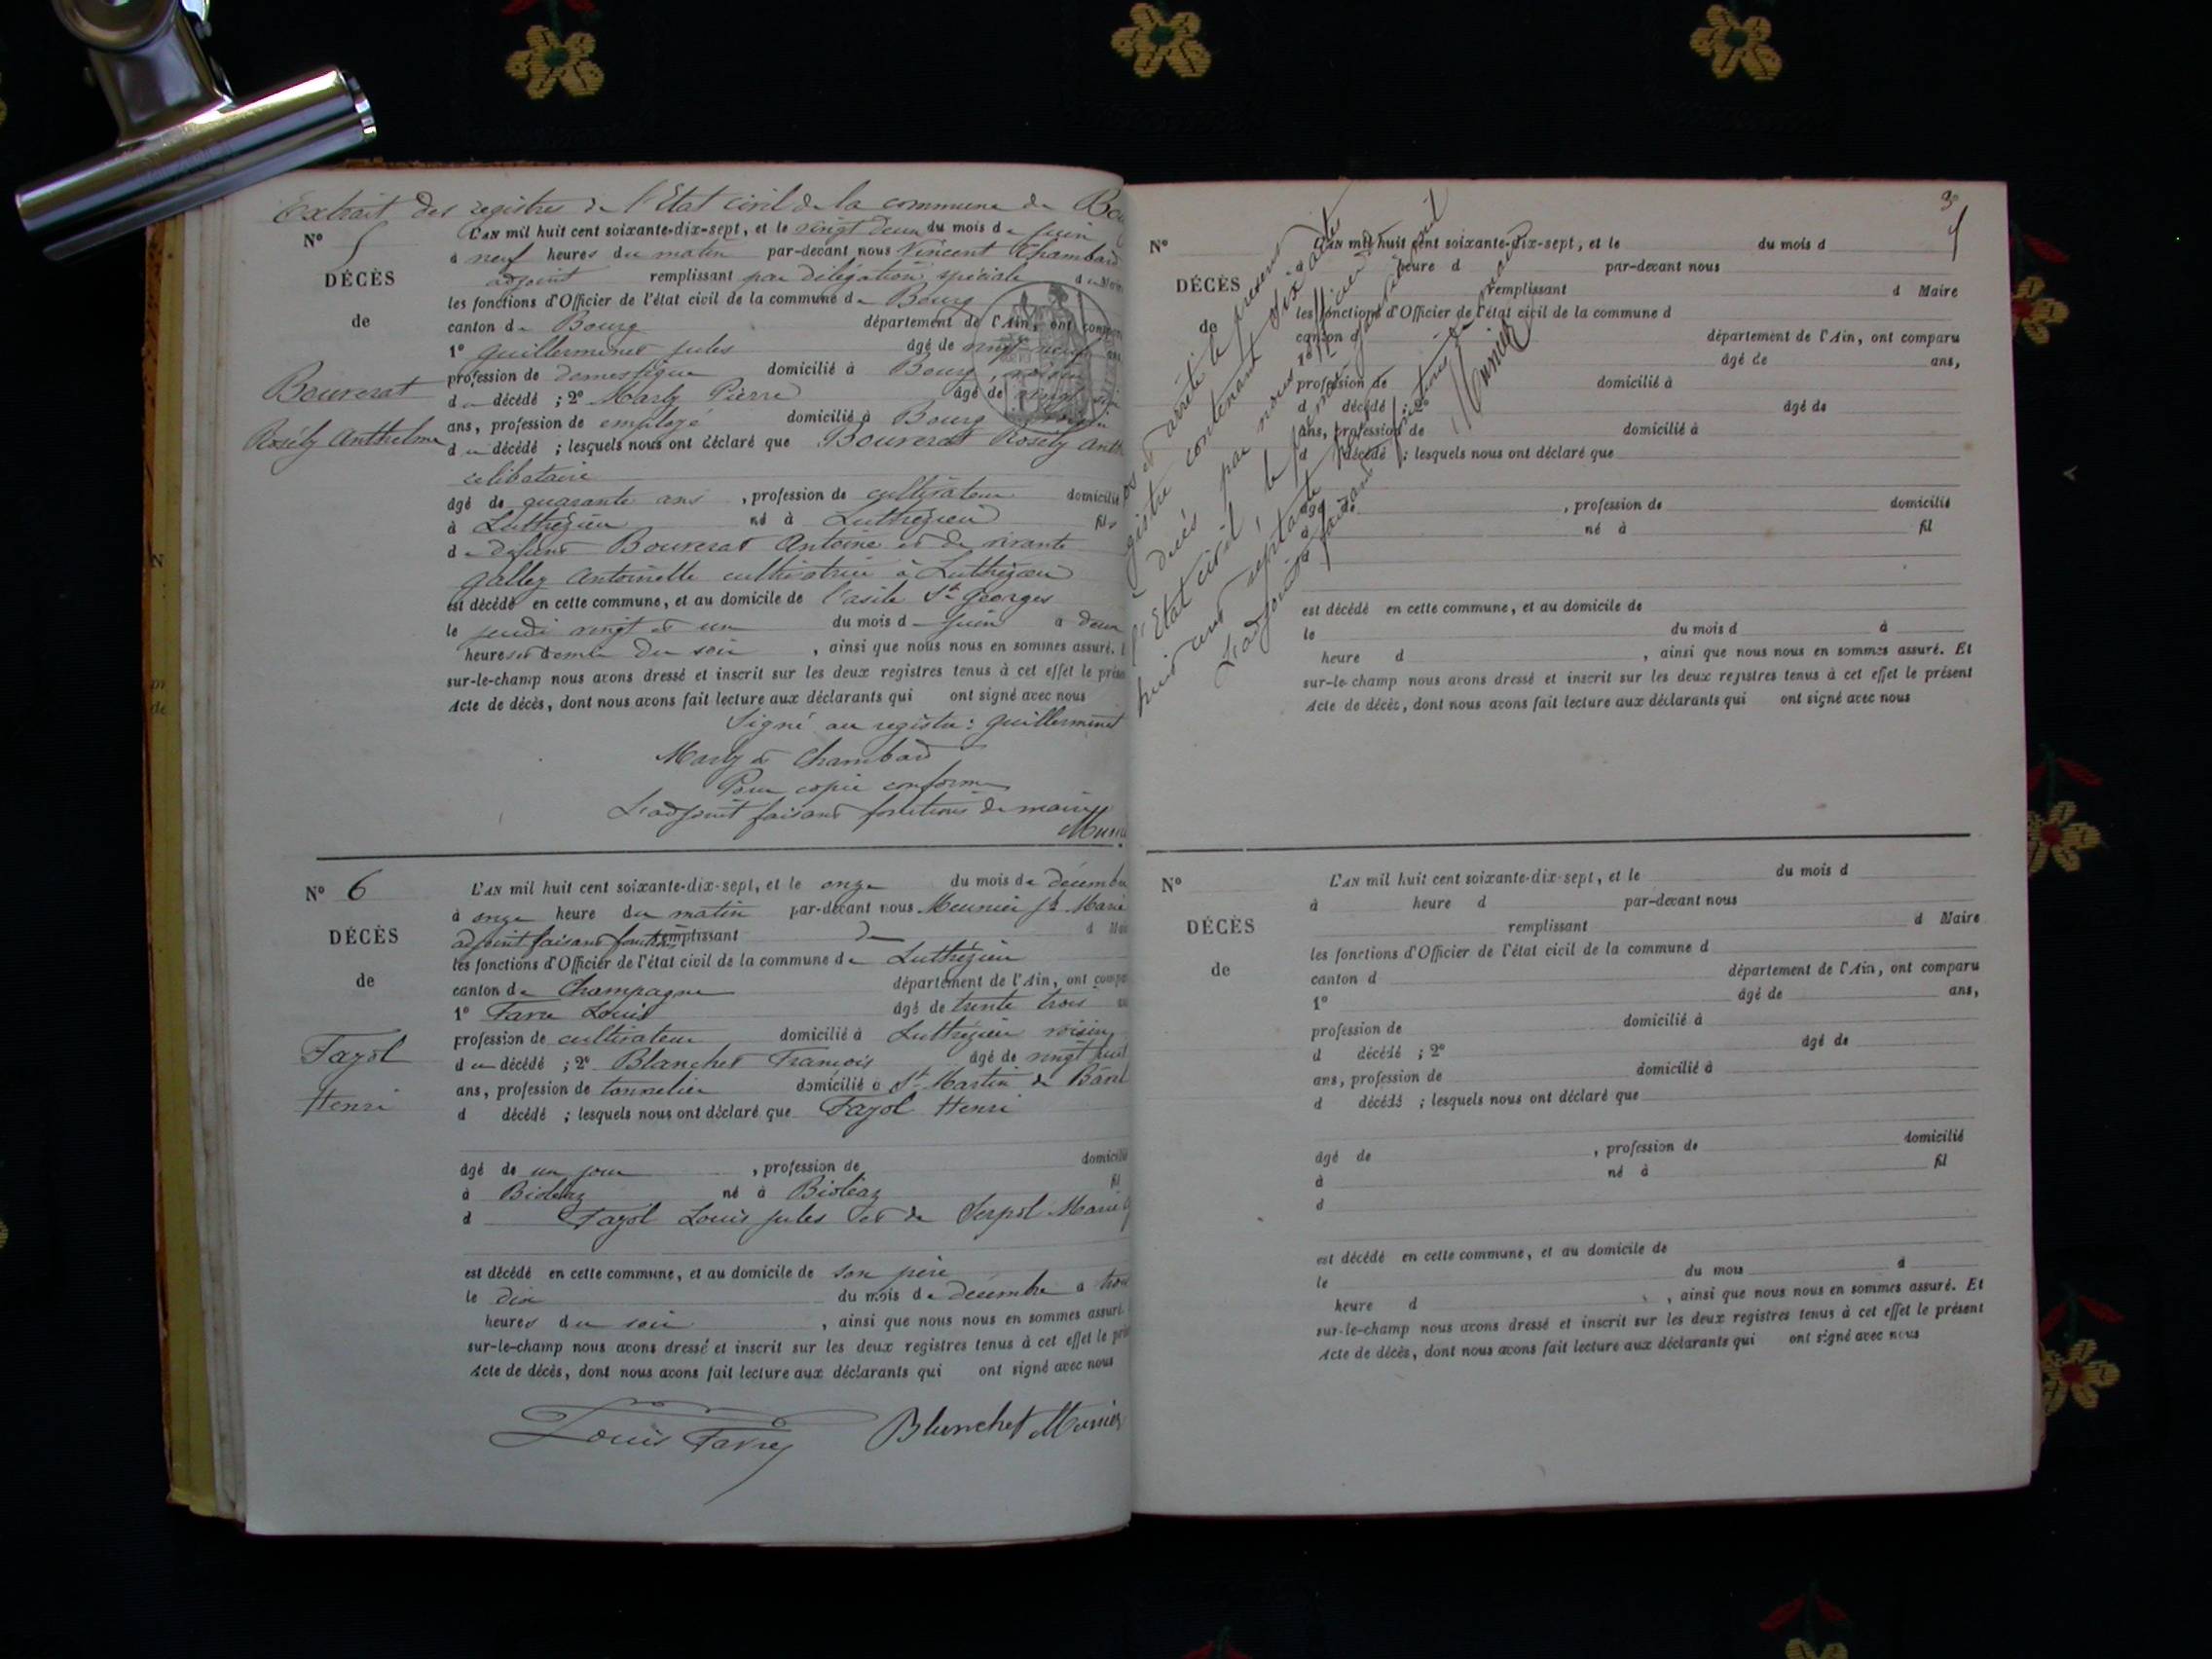 Extrait des registres de l'Etat civil de la commune de
N° 5
L'AN mil huit cent soixante-dix-sept, et le vingt deux du mois de juin
à neuf heures du matin par-devant nous Vincent Chambard
adjoint remplissant par délégation spéciale d Maire
DÉCÈS
les fonctions d'Officier de l'état civil de la commune de Bourg
de
canton de Bourg département de l'Ain, ont comparu
1° Guillerminet jules âgé de vingt neuf ans
profession de domestique domicilié à Bourg, voisin
Bouverat
Rosély Anthelme
du décédé ; 2° Marly Pierre âgé de vingt
ans, profession de employé domicilié à Bourg voisin
du décédé ; lesquels nous ont déclaré que Bouverat Rosély Anth
célibataire
âgé de quarante ans , profession de cultivateur domicilié
à Luthézieu né à Luthézieu fils
de défunt Bouverat Antoine et de vivante
Galley Antoinette cultivatrice à Luthézieu
est décédé en cette commune, et au domicile de l'asile St Georges
le jeudi vingt et un du mois de juin à deux
heures et demie du soir , ainsi que nous nous en sommes assuré.
sur-le-champ nous avons dressé et inscrit sur les deux registres tenus à cet effet le présent
Acte de décès, dont nous avons fait lecture aux déclarants qui ont signé avec nous
Signé au registre : Guillerminet
Marly et Chambard
Pour copie conforme
L'adjoint faisant fonctions de maire
N° 6
L'AN mil huit cent soixante-dix-sept, et le onze du mois de décembre
à onze heure du matin par-devant nous Meunier Jh Marie
adjoint faisant fonctions remplissant de d Maire
DÉCÈS
les fonctions d'Officier de l'état civil de la commune de Luthézieu
de
canton de Champagne département de l'Ain, ont comparu
1° Favre Louis âgé de trente trois
Fayol
Henri
profession de cultivateur domicilié à Luthézieu voisin
du décédé ; 2° Blanchet François âgé de vingt huit
ans, profession de tonnelier domicilié à St Martin de
d décédé ; lesquels nous ont déclaré que Fayol Henri
âgé de un jour , profession de domicilié
à Bioléaz né à Bioléaz fil
d Fayol Louis jules et de Serpol Marie
est décédé en cette commune, et au domicile de son père
le dix du mois de décembre à trois
heures du soir , ainsi que nous nous en sommes assuré.
sur-le-champ nous avons dressé et inscrit sur les deux registres tenus à cet effet le présent
Acte de décès, dont nous avons fait lecture aux déclarants qui ont signé avec nous
Louis Favre Blanchet Munier
3
N°
L'AN mil huit cent soixante-dix-sept, et le du mois d
à heure d par-devant nous
DÉCÈS
remplissant d Maire
de
les fonctions d'Officier de l'état civil de la commune d
canton d département de l'Ain, ont comparu
âgé de ans,
profession de domicilié à
d décédé ; 2° âgé de
ans, profession de domicilié à
d décédé ; lesquels nous ont déclaré que
âgé de , profession de domicilié
à né à fil
d
est décédé en cette commune, et au domicile de
le du mois d à
heure d , ainsi que nous nous en sommes assuré. Et
sur-le-champ nous avons dressé et inscrit sur les deux registres tenus à cet effet le présent
Acte de décès, dont nous avons fait lecture aux déclarants qui ont signé avec nous
arrêté le présent
gistre contenant six actes
décès par nous officier de
l'Etat civil, le
huit cent septante
L'adjoint faisant fonctions de maire
Munier
N°
L'AN mil huit cent soixante-dix-sept, et le du mois d
à heure d par-devant nous
DÉCÈS
remplissant d Maire
les fonctions d'Officier de l'état civil de la commune d
de
canton d département de l'Ain, ont comparu
1° âgé de ans,
profession de domicilié à
d décédé ; 2° âgé de
ans, profession de domicilié à
d décédé ; lesquels nous ont déclaré que
âgé de , profession de domicilié
à né à fil
d
est décédé en cette commune, et au domicile de
le du mois à
heure d , ainsi que nous nous en sommes assuré. Et
sur-le-champ nous avons dressé et inscrit sur les deux registres tenus à cet effet le présent
Acte de décès, dont nous avons fait lecture aux déclarants qui ont signé avec nous